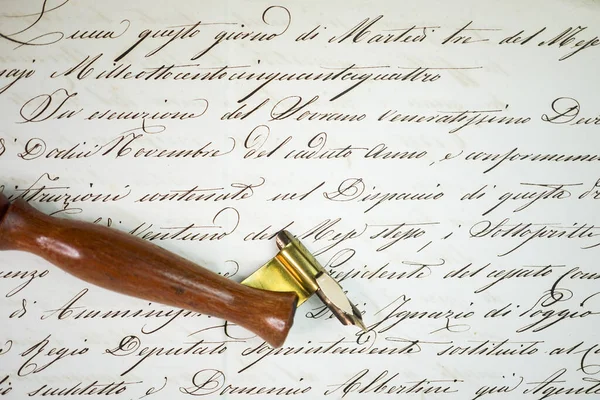 Lucca questo giorno di Martedì tre del Mese
Maggio Milleottocentocinquantaquattro
In esecuzione del Sovrano veneratissimo Decr
di Dodici Novembre del caduto Anno, e conformemen
Istruzioni contenute nel Dispaccio di questa
del Mese stesso, i Sottoscritti
enzo Presidente del cessato Com
di Ignazio di Poggio
Regio Deputato Soprintendente sostituito al
suddetto e Domenico Albertini già Agente